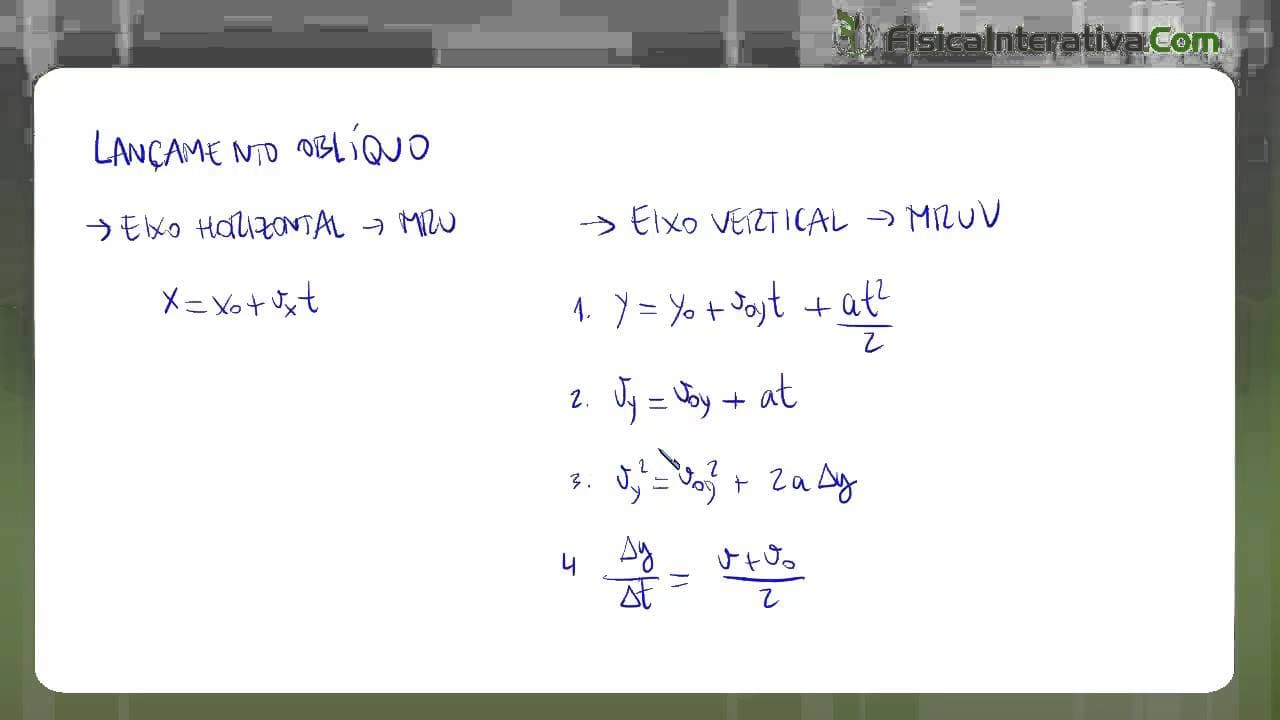 FisicaInterativa.Com
LANÇAMENTO OBLÍQUO
→ EIXO HORIZONTAL → MRU
x = x₀ + vₓt
→ EIXO VERTICAL → MRUV
1. y = y₀ + v₀yt + at²/2
2. vy = v₀y + at
3. vy² = v₀y² + 2aΔy
4 Δy/Δt = v + v₀/2